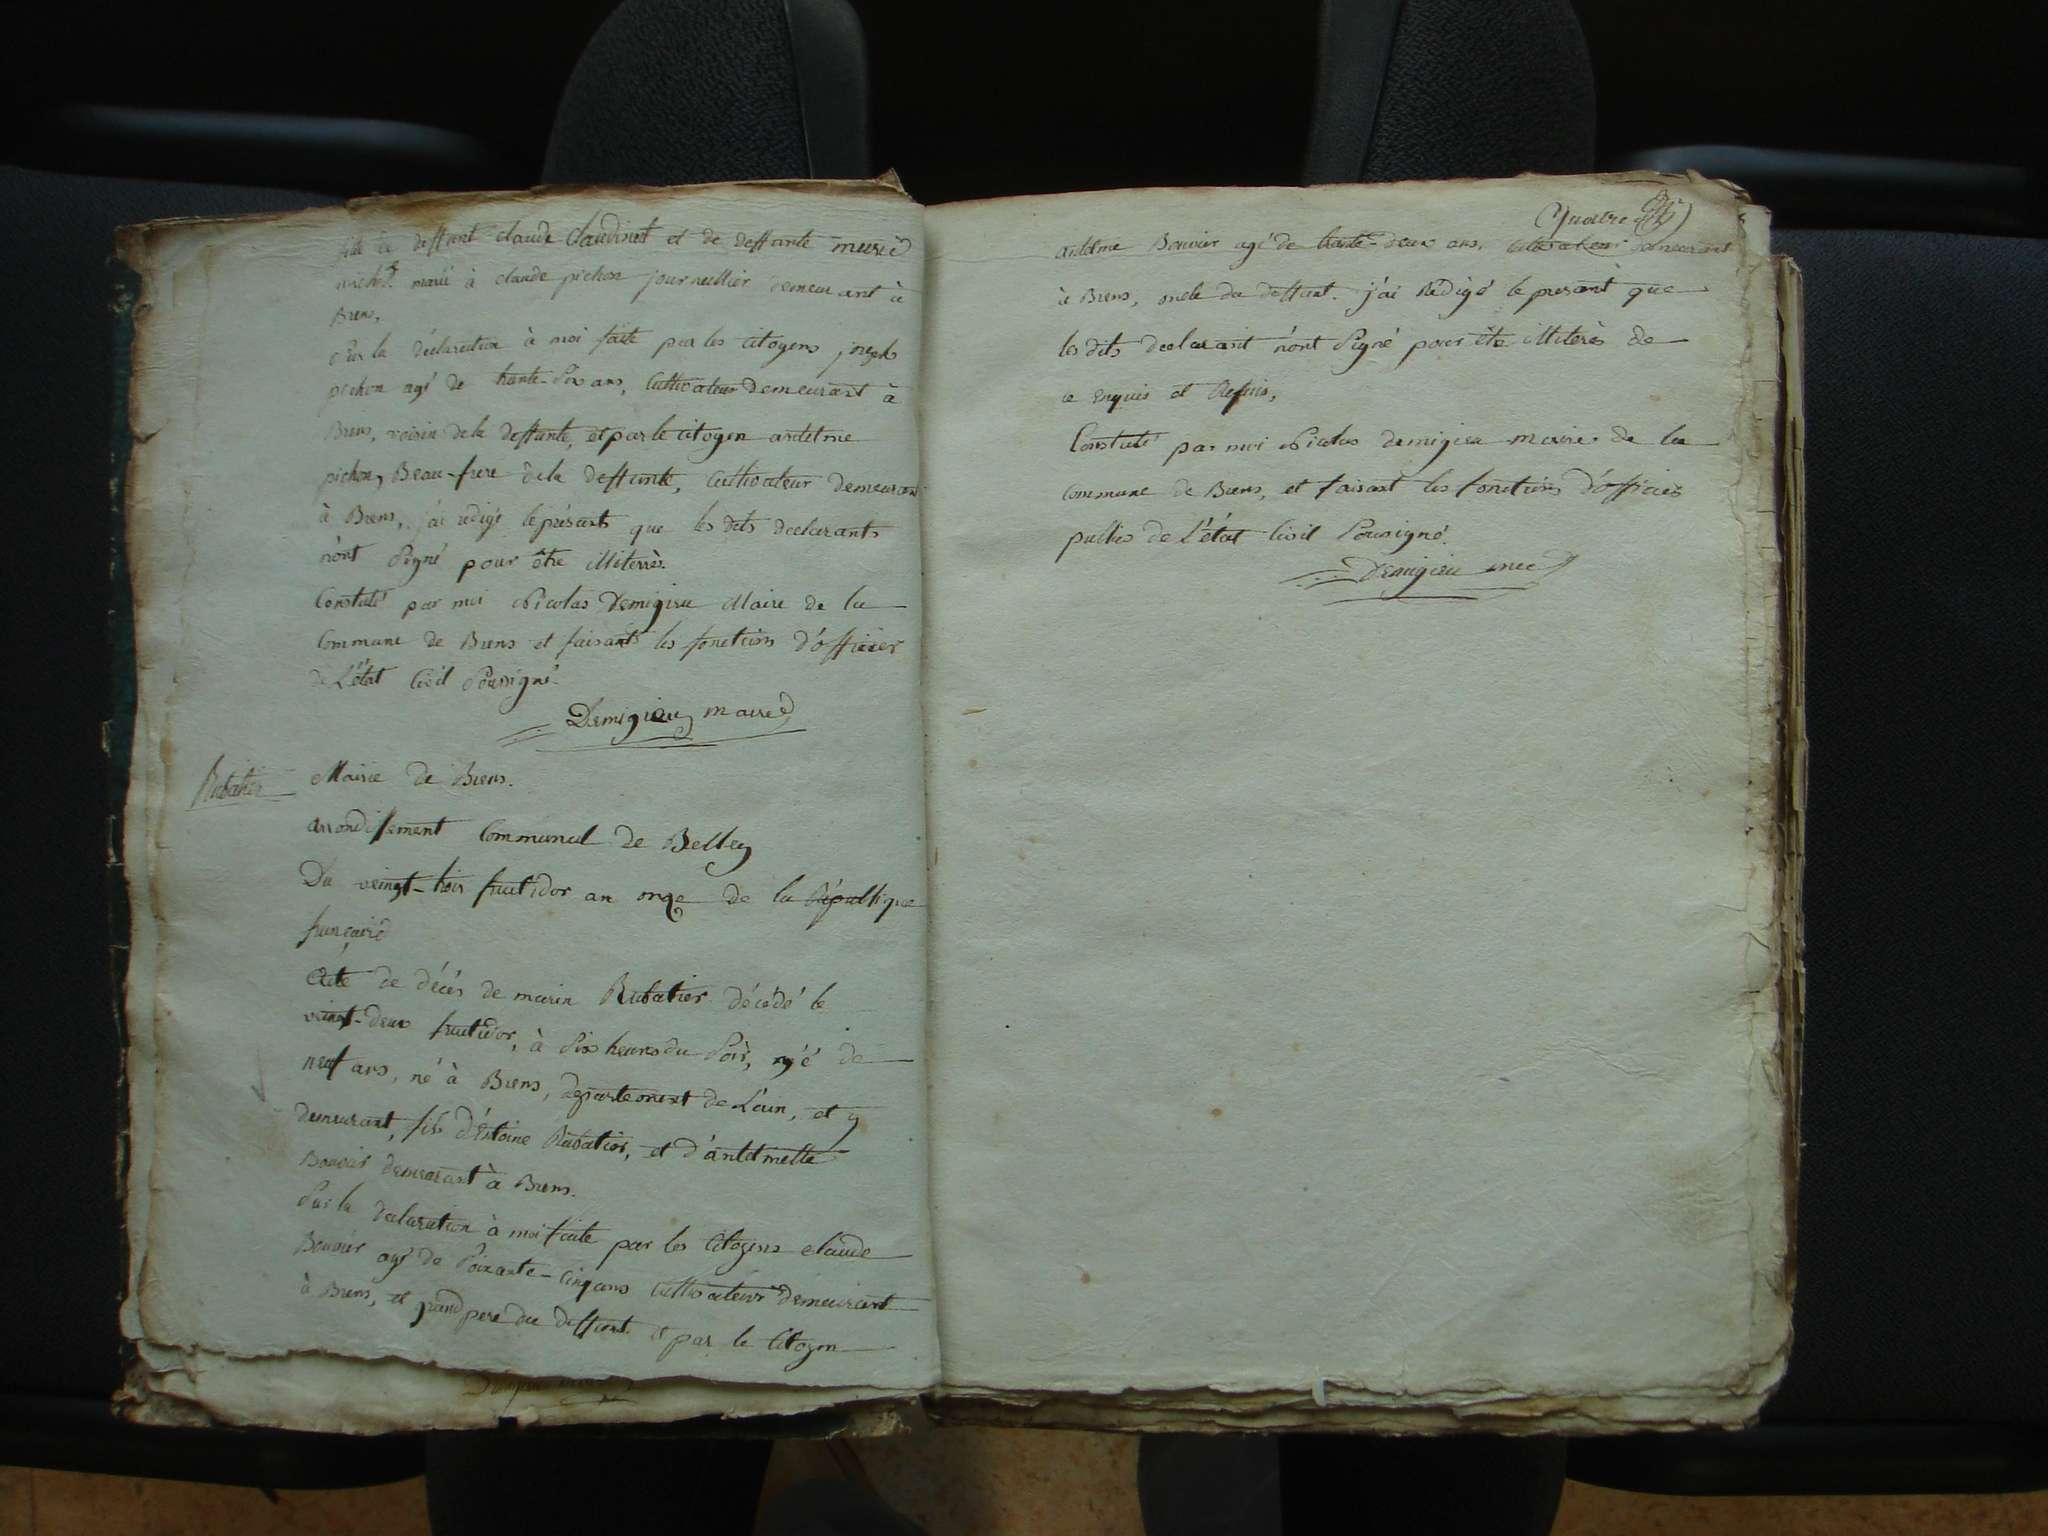 fille de deffunt claude Claudinot et de deffunte
marié à claude pichon journallier demeurant à
Brens,
Sur la déclaration à moi faite par les citoyens joseph
pichon agé de trante-six ans, Cultivateur demeurant à
Brens, voisin de la deffunte, et par le citoyen antelme
pichon, Beau-frere de la deffunte, Cultivateur demeurant
à Brens, j'ai rédigé le présents que les dits declarants
n'ont Signé pour être illiterrès.
Constaté par moi Nicolas Demigieu Maire de la
Commune de Brens et faisants les fonctions d'officier
de L'état Civil Soussigné.
Demigieu maire
Rubatier
Mairie de Brens.
arrondissement Communal de Belley
Du veingt-trois fructidor an onze de la République
française
Acte de décés de marin Rubatier décédé le
veingt-deux fructidor, à Six heures du Soir, agé de
neuf ans, né à Brens, departement de L'ain, et y
demeurant, fils d'Entoine Rubatier, et d'antelmette
Bouvier demeurant à Brens.
Sur la declaration à moi faite par les Citoyens claude
Bouvier agé de Soixante-cinq ans Cultivateur demeurant
à Brens, et grand pere du deffunt et par le Citoyen
Quatre
antelme Bouvier agé de trante-deux ans, Cultivateur demeurant
à Brens, oncle du deffunt. j'ai Rédigé le presant que
les dits declarant n'ont Signé pour être illiterès de
ce enquis et Requis,
Constaté par moi Nicolas demigieu maire de la
Commune de Brens, et faisant les fonctions d'officier
public de L'état Civil Soussigné.
Demigieu